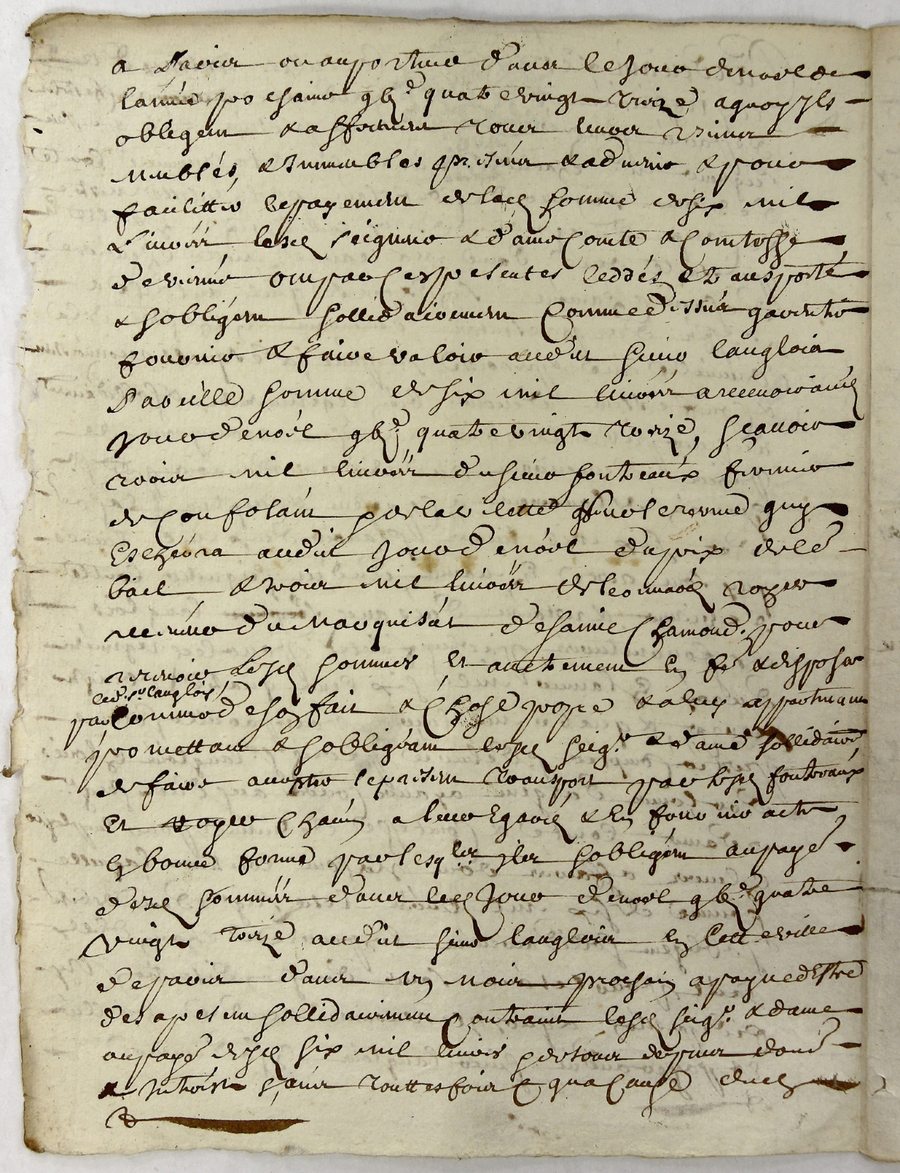 a Paris ou au porteur dans le Jour de noel de
lannée prochaine gbj.c quatre vingt treize, a quoy ils
obligent & affectent tous leurs biens
meublés, & Immeubles presens & aduenir & pour
facilitter le payement de lad somme de six mil
Liures lesd seigneur & dame Comte & Comtesse
de vienne ont par ces presentes ceddés, & transporté
& sobligent sollidairement Comme dessus garentir
fournir & faire valoir audit sieur langlois
Pareille somme de six mil liures a receuoir aud
Jour de noel gbj.c quatre vingt treize, scauoir
trois mil liures du sieur fonteaux fermier
de Confolain par la lettre quy
Eschera audit Jour de noel du prix de le
bail & trois mil liures de leonnard royer
receueur du Marquisat de saint Chamond, pour
receuoir lesd sommes Et autrement En fe & disposer
led. sr. langlois
par Comme de son fait & Chose propre & a luy appartenant
promettant & sobligeant lesd seigr. & dame sollidairemt
de faire accepter le present transport par lesd fonteaux
Et royer Chacun a leur Egard & En fournir acte
En bonne forme par lesqls Ils sobligent au payé
desd sommes dans led Jour de noel gbj.c quatre
vingt treize audit sieur langlois En Cette ville
de paris dans un mois prochain a peyne dEstre
des a present sollidairement Contraint lesd seigr. & dame
au payé desd six mil liures
& sans touttesfois q